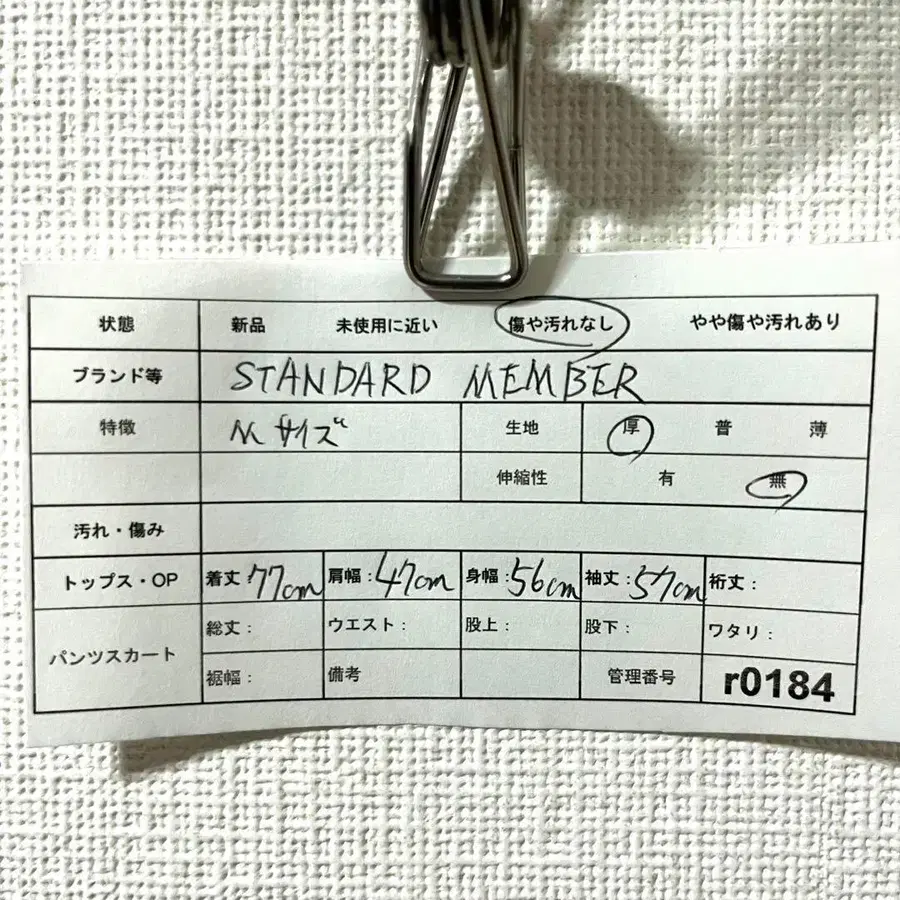 状態 新品 未使用に近い 傷や汚れなし やや傷や汚れあり
ブランド等 STANDARD MEMBER
特徴 Mサイズ 生地 厚 普 薄
伸縮性 有 無
汚れ・傷み
トップス・OP 着丈:77cm 肩幅:47cm 身幅:56cm 袖丈:57cm 裄丈:
パンツスカート 総丈: ウエスト: 股上: 股下: ワタリ:
裾幅: 備考 管理番号 r0184